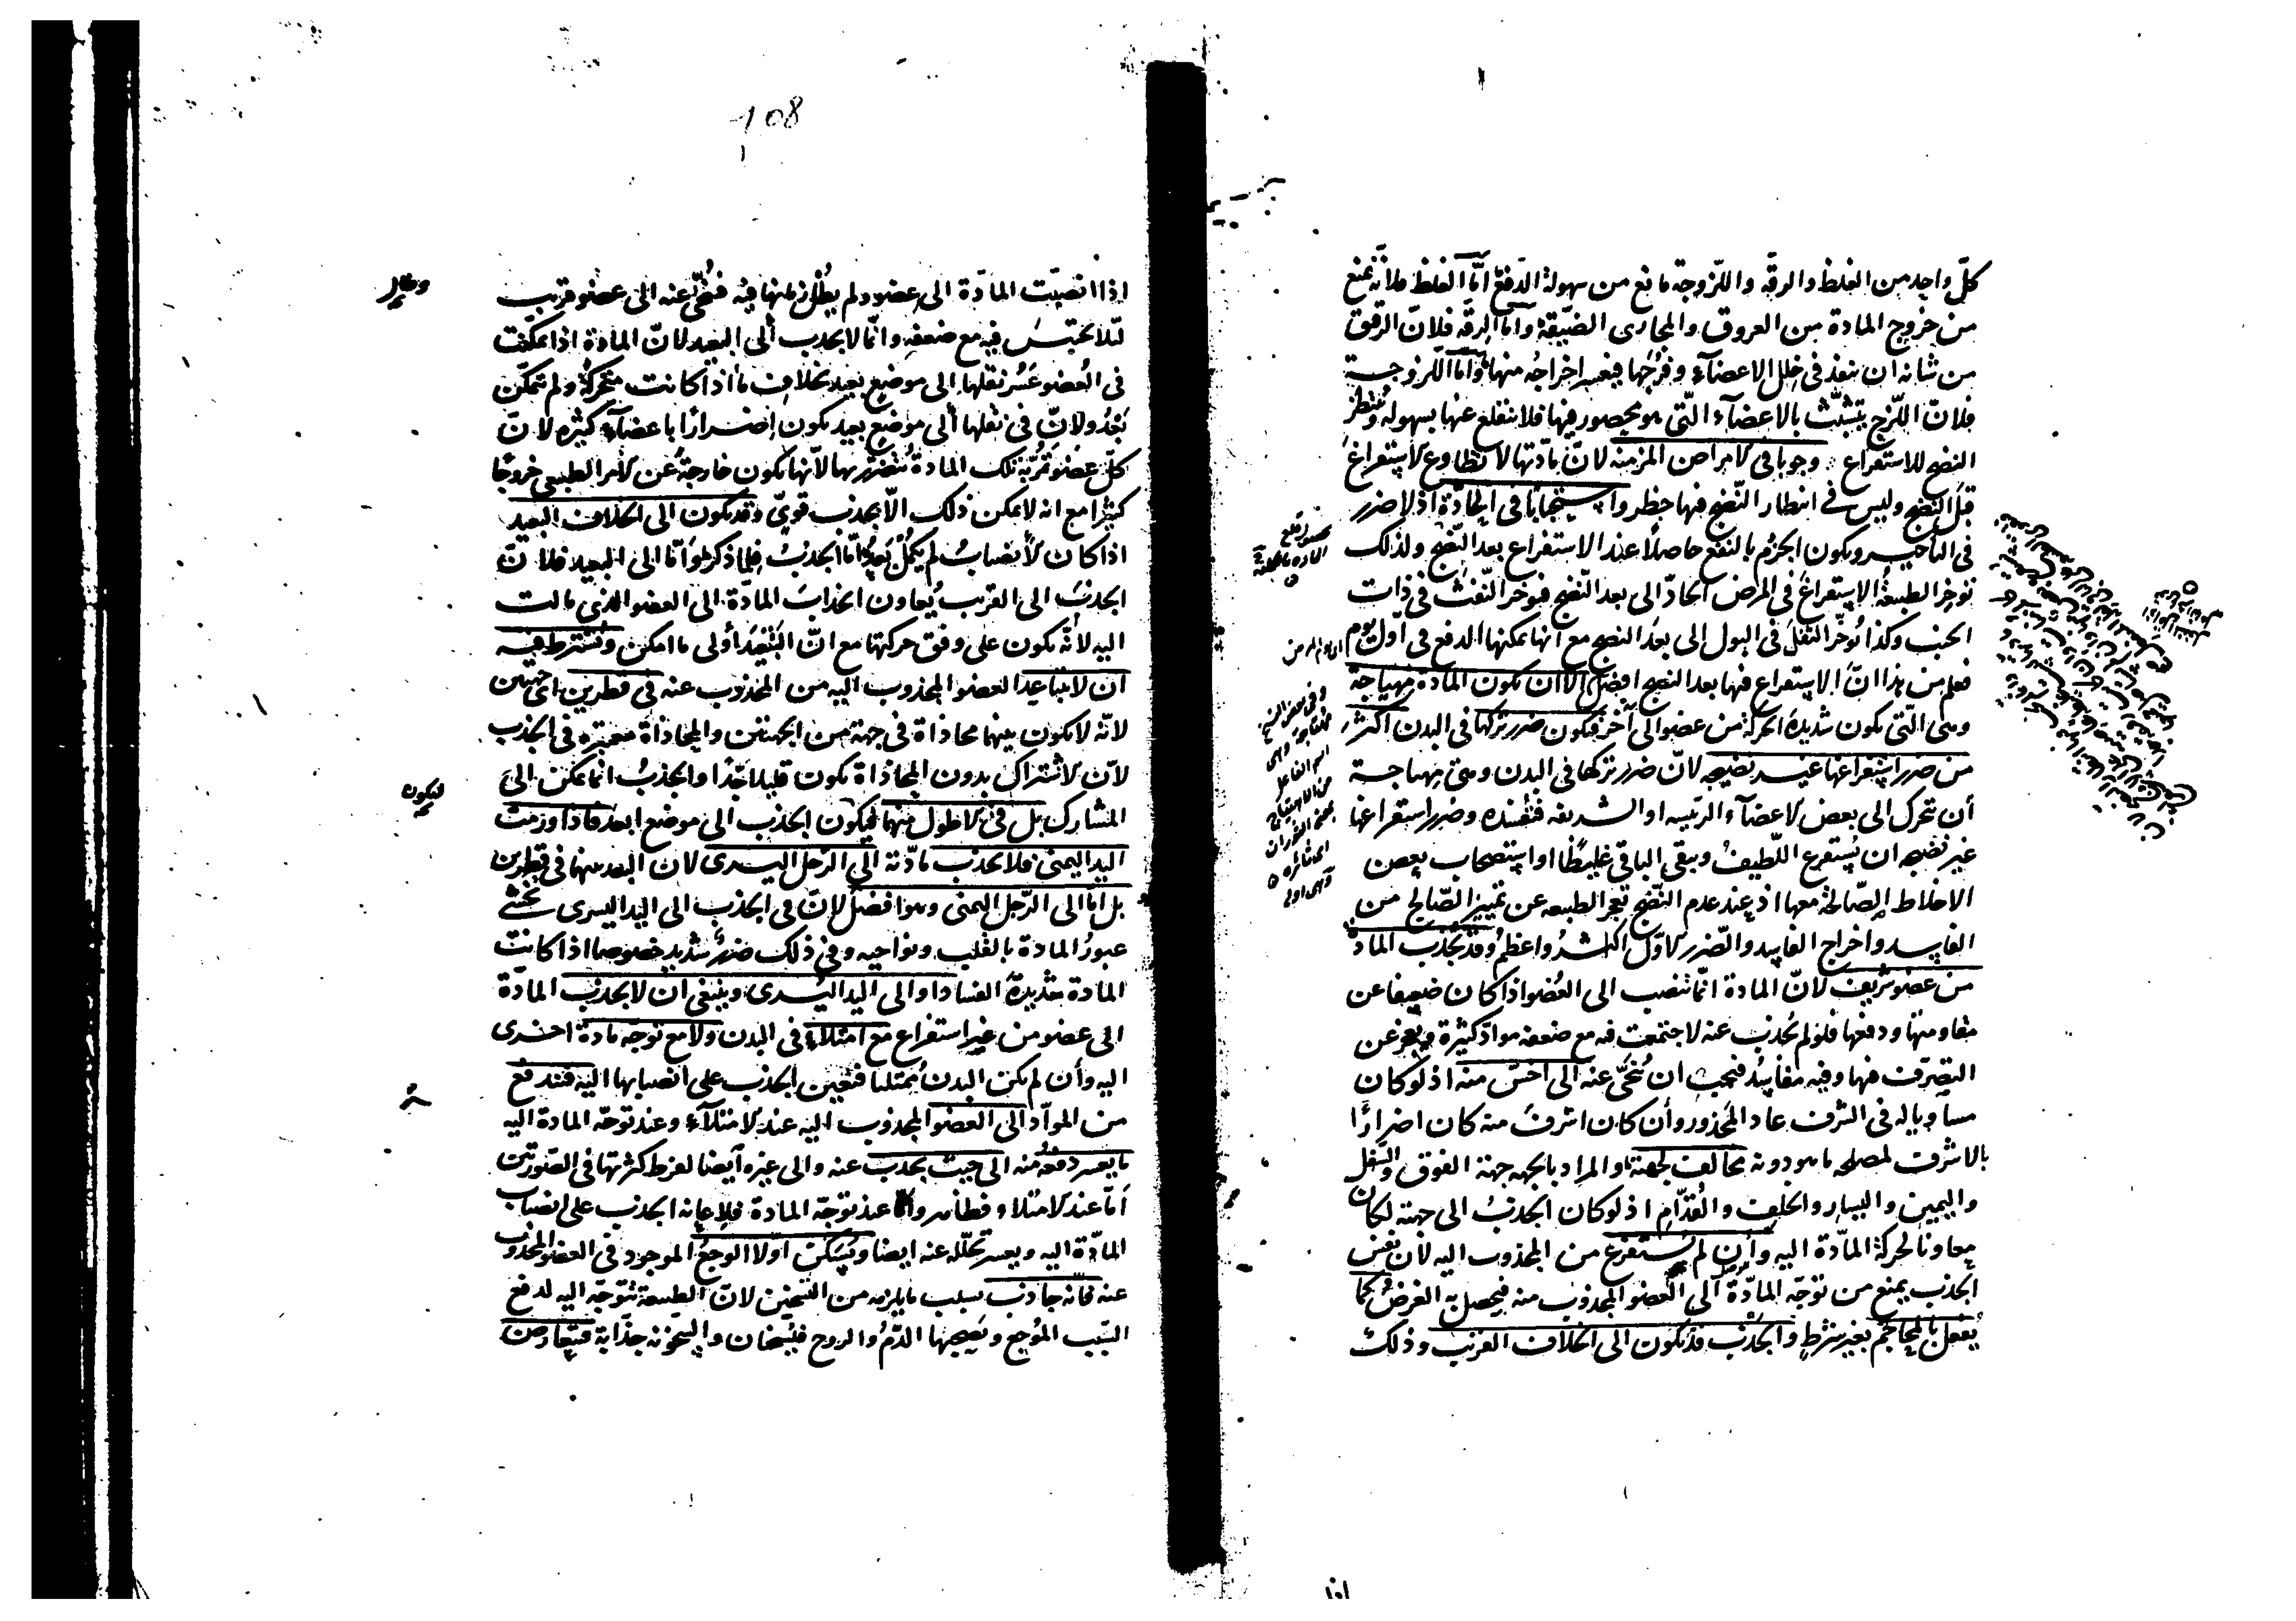 كلّ واحد من الغلظ والرقّة واللّزوجة مانع من سهولة الدّفع امّا الغلظ فلانّه يمنع
من خروج المادة من العروق والمجارى الضيّقة وامّا الرقّة فلانّ الرقيق
من شانه ان ينفذ فى خلل الاعضآء وفرجها فيعسر اخراجه منها وامّا اللّزوجة
فلانّ اللّزج يتشبّث بالاعضآء الّتى هو محصور فيها فلا ينقلع عنها بسهولة وينتظر
النضج للاستفراغ وجوبا فى الامراض المزمنة لانّ مادّتها لا تطاوع الاستفراغ
قبل النّضج وليس فى انتظار النّضج فيها خطر واستحبابا فى الحادّة اذ لا ضرر
فى التأخير ويكون الجزم بالنفع حاصلا عند الاستفراغ بعد النّضج ولذلك
تؤخّر الطبيعة الاستفراغ فى المرض الحادّ الى بعد النّضج فيؤخر النّفث فى ذات
الجنب وكذا تؤخّر الثفل فى البول الى بعد النضج مع انها يمكنها الدفع فى اوّل يوم
فعلم من هذا انّ الاستفراغ فيها بعد النضج افضل الّا ان يكون المادة مهياجة
وهى الّتى يكون شديدة الحركة من عضو الى آخر فيكون ضرر تركها فى البدن اكثر
من ضرر استفراغها غير نضيجه لانّ ضرر تركها فى البدن وهى مهياجة
أن تتحرك الى بعض الاعضآء الرئيسه او الشريفه فتفسده وضرر استفراغها
غير نضيجه ان يستفرغ اللّطيف ويبقى الباقى غليظا او استصحاب بعض
الاخلاط الصّالحة معها اذ عند عدم النّضج تعجز الطبيعه عن تمييز الصّالح من
الفاسد واخراج الفاسد والضّرر الاوّل اشدّ واعظم وقد تجذب المادة
من عضو شريف لانّ المادة انّما تنصب الى العضو اذا كان ضعيفا عن
مقاومتها ودفعها فلو لم تجذب عنه لاجتمعت فيه مع ضعفه موادّ كثيرة ويعجز عن
التصرّف فيها وفيه مفاسد فيجب ان تنحّى عنه الى اخسّ منه اذ لو كان
مساويا له فى الشرف عاد المحذور وأن كان اشرف منه كان اضرارًا
بالاشرف لمصلحة ما هو دونه مخالف لجهته والمراد بالجهة جهة الفوق والسّفل
واليمين واليسار والخلف والقدّام اذ لو كان الجذب الى جهته لكان
معاونا لحركة المادّة اليه وأن لم يستفرغ من المجذوب اليه لان نفس
الجذب يمنع من توجّه المادّة الى العضو المجذوب منه فيحصل به الغرض كما
يفعل بالمحاجم بغير شرط والجذب قد يكون الى الخلاف القريب وذلك
اذا
108
اذا انصبّت المادّة الى عضو ولم يطل زمانها فيه فتنحّى عنه الى عضو قريب
لئلا تحتبس فيه مع ضعفه وانّما لا يجذب الى البعيد لانّ المادة اذا تمكّنت
فى العضو عسر نقلها الى موضع بعيد بخلاف ما اذا كانت متحركة ولم تتمكّن
بعد ولانّ فى نقلها الى موضع بعيد يكون اضرارًا باعضآء كثيره لانّ
كلّ عضو تمرّ به تلك المادة يتضرّر بها لانّها يكون خارجة عن الامر الطبيعى خروجًا
كثيرا مع انه لا يمكن ذلك الّا بجذب قوىّ وقد يكون الى الخلاف البعيد
اذا كان الانصباب لم يكمل بعد امّا الجذب فلما ذكر وامّا الى البعيد فلانّ
الجذب الى القريب يعاون انجذاب المادّة الى العضو الذى مالت
اليه لانّه يكون على وفق حركتها مع انّ البعيد أولى ما امكن ويشترط فيه
ان لا يتباعد العضو المجذوب اليه من المجذوب عنه فى قطرين اى جهتين
لانّه لا يكون بينهما محاذاة فى جهة من الجهتين والمحاذاة معتبره فى الجذب
لانّ الاشتراك بدون المحاذاة يكون قليلا جدّا والجذب انما يمكن الى
المشارك بل فى الاطول منهما ليكون الجذب الى موضع ابعد فاذا ورمت
اليد اليمنى فلا تجذب مادّته الى الرّجل اليسرى لان البعد بينهما فى قطرين
بل امّا الى الرّجل اليمنى وهو افضل لانّ فى الجذب الى اليد اليسرى يخشى
عبور المادة بالقلب ونواحيه وفى ذلك ضرر شديد خصوصا اذا كانت
المادة شديدة الفساد او الى اليد اليسرى وينبغى ان لا يجذب المادّة
الى عضو من غير استفراغ مع امتلاء فى البدن ولا مع توجّه مادة اخرى
اليه وأن لم يكن البدن ممتلئا فيعين الجذب على انصبابها اليه فيندفع
من الموادّ الى العضو المجذوب اليه عند الامتلآء وعند توجّه المادة اليه
ما يعسر دفعه منه الى حيث يجذب عنه والى غيره أيضا لفرط كثرتها فى الصّورتين
أمّا عند الامتلاء فظاهر وامّا عند توجّه المادة فلاعانه الجذب على انصباب
المادّة اليه ويعسر تحلّله عنه ايضا ويسكّن اوّلا الوجع الموجود فى العضو المجذوب
عنه فانّه جاذب بسبب ما يلزمه من التسخين لانّ الطبيعة تتوجّه اليه لدفع
السّبب الموجع ويصحبها الدّم والروح فيسخنان والسّخونه جذّابة فيتعارض